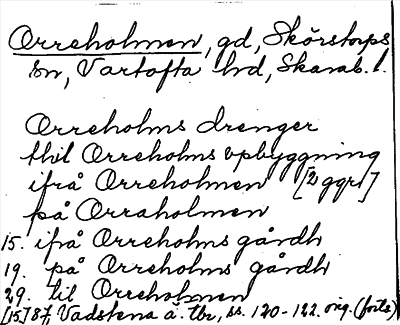 Orreholmen, gd, Skörstorps
sn, Vartofta hd, Skarab. l.
Orreholms drenger
thil Orreholms vpbyggning
ifrå Orreholmen [2 ggr]
på Orraholmen
15. ifrå Orreholms gårdh
19. på Orreholms gårdh
29. til Orreholmen
[15]87 Vadstena ä. tbr, ss. 120-122. orig. (forts)